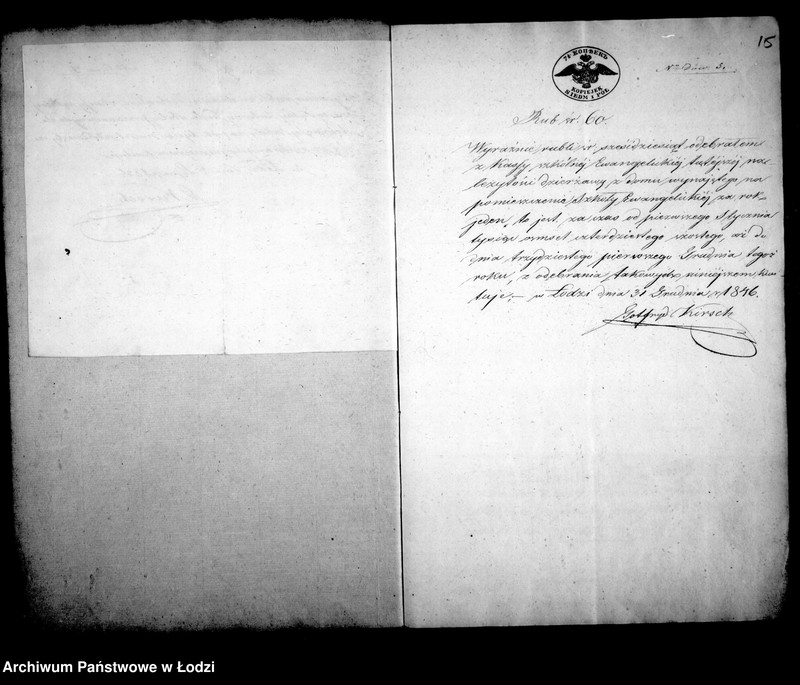 15
7½ КОПѢЕКЪ
KOPIEJEK
SIEDM I PÓŁ
Rub. sr. 60.
Wyraźnie rubli sr. sześćdziesiąt odebrałem
z Kassy szkólnéj Ewangelickiéj tutejszéj na
leżytości dzierżawy z domu wynajętego na
pomieszczenie Szkoły Ewangelickiéj, za rok
jeden, to jest, za czas od pierwszego Stycznia
tysiąc ośmset czterdziestego szóstego, aż do
dnia trzydziestego pierwszego Grudnia tegoż
roku, z odebrania takowych niniéjszém kwi-
tuje. — w Łodzi dnia 31 Grudnia r. 1846.
Gotfryd Kirsch
Archiwum Państwowe w Łodzi